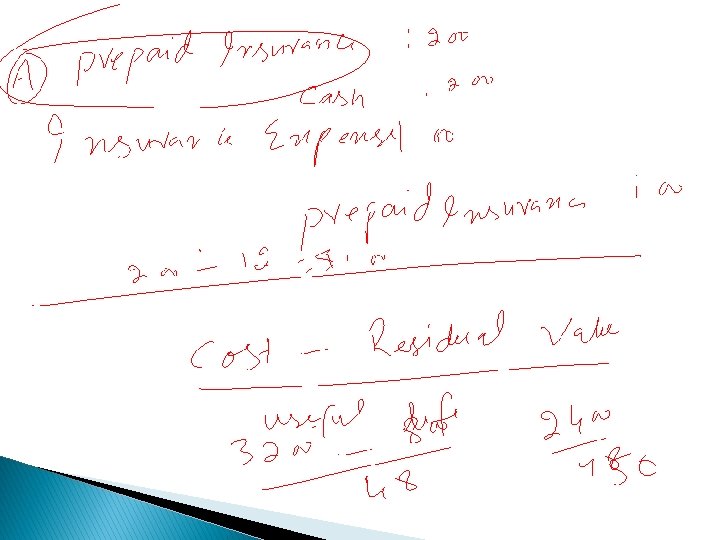 A prepaid Insurance : 200
Cash . 200
Insurance Expense 100
prepaid Insurance 100
Cost - Residual Value
useful life
3200 - 800 2400
48 48